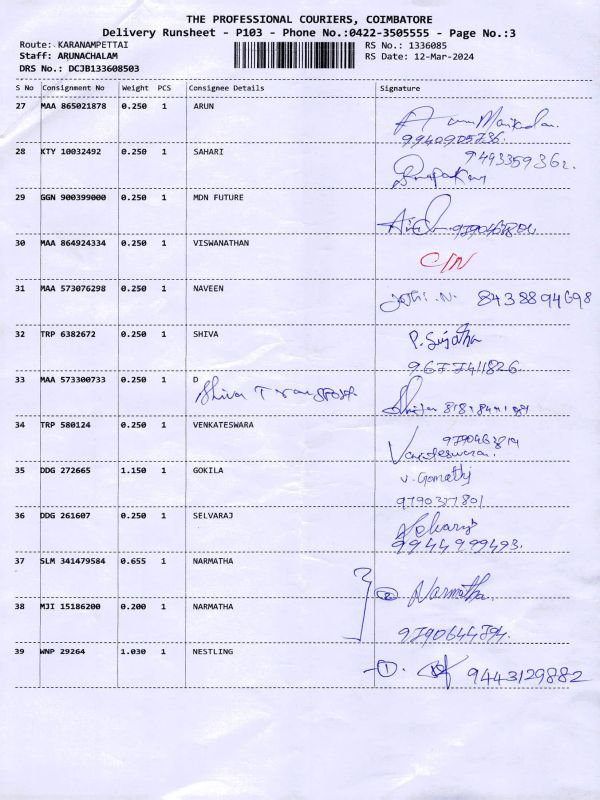 THE PROFESSIONAL COURIERS, COIMBATORE
Delivery Runsheet - P103 - Phone No.:0422-3505555 - Page No.:3
Route: KARANAMPETTAI RS No.: 1336085
Staff: ARUNACHALAM RS Date: 12-Mar-2024
DRS No.: DCJB133608503
S No Consignment No Weight PCS Consignee Details Signature
27 MAA 865021878 0.250 1 ARUN
9940905736
28 KTY 10032492 0.250 1 SAHARI 9493359362.
29 GGN 900399000 0.250 1 MDN FUTURE
30 MAA 864924334 0.250 1 VISWANATHAN C/N
31 MAA 573076298 0.250 1 NAVEEN Jothi .N. 8438894698
32 TRP 6382672 0.250 1 SHIVA P. Sujatha
9677411826.
33 MAA 573300733 0.250 1 D
Shiva Transport
34 TRP 580124 0.250 1 VENKATESWARA
35 DDG 272665 1.150 1 GOKILA V. Gomathi
9790327801
36 DDG 261607 0.250 1 SELVARAJ
9944999493.
37 SLM 341479584 0.655 1 NARMATHA
② Narmatha.
38 MJI 15186200 0.200 1 NARMATHA
9790644794.
39 WNP 29264 1.030 1 NESTLING
① 9443129882